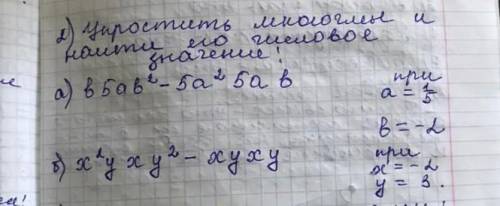 2) Упростить многочлены и
найти его числовое
значение!
а) в5ав² - 5а² 5а в при
а = 1/5
в = -2
б) x²y xy² - xyxy при
x = -2
y = 3.